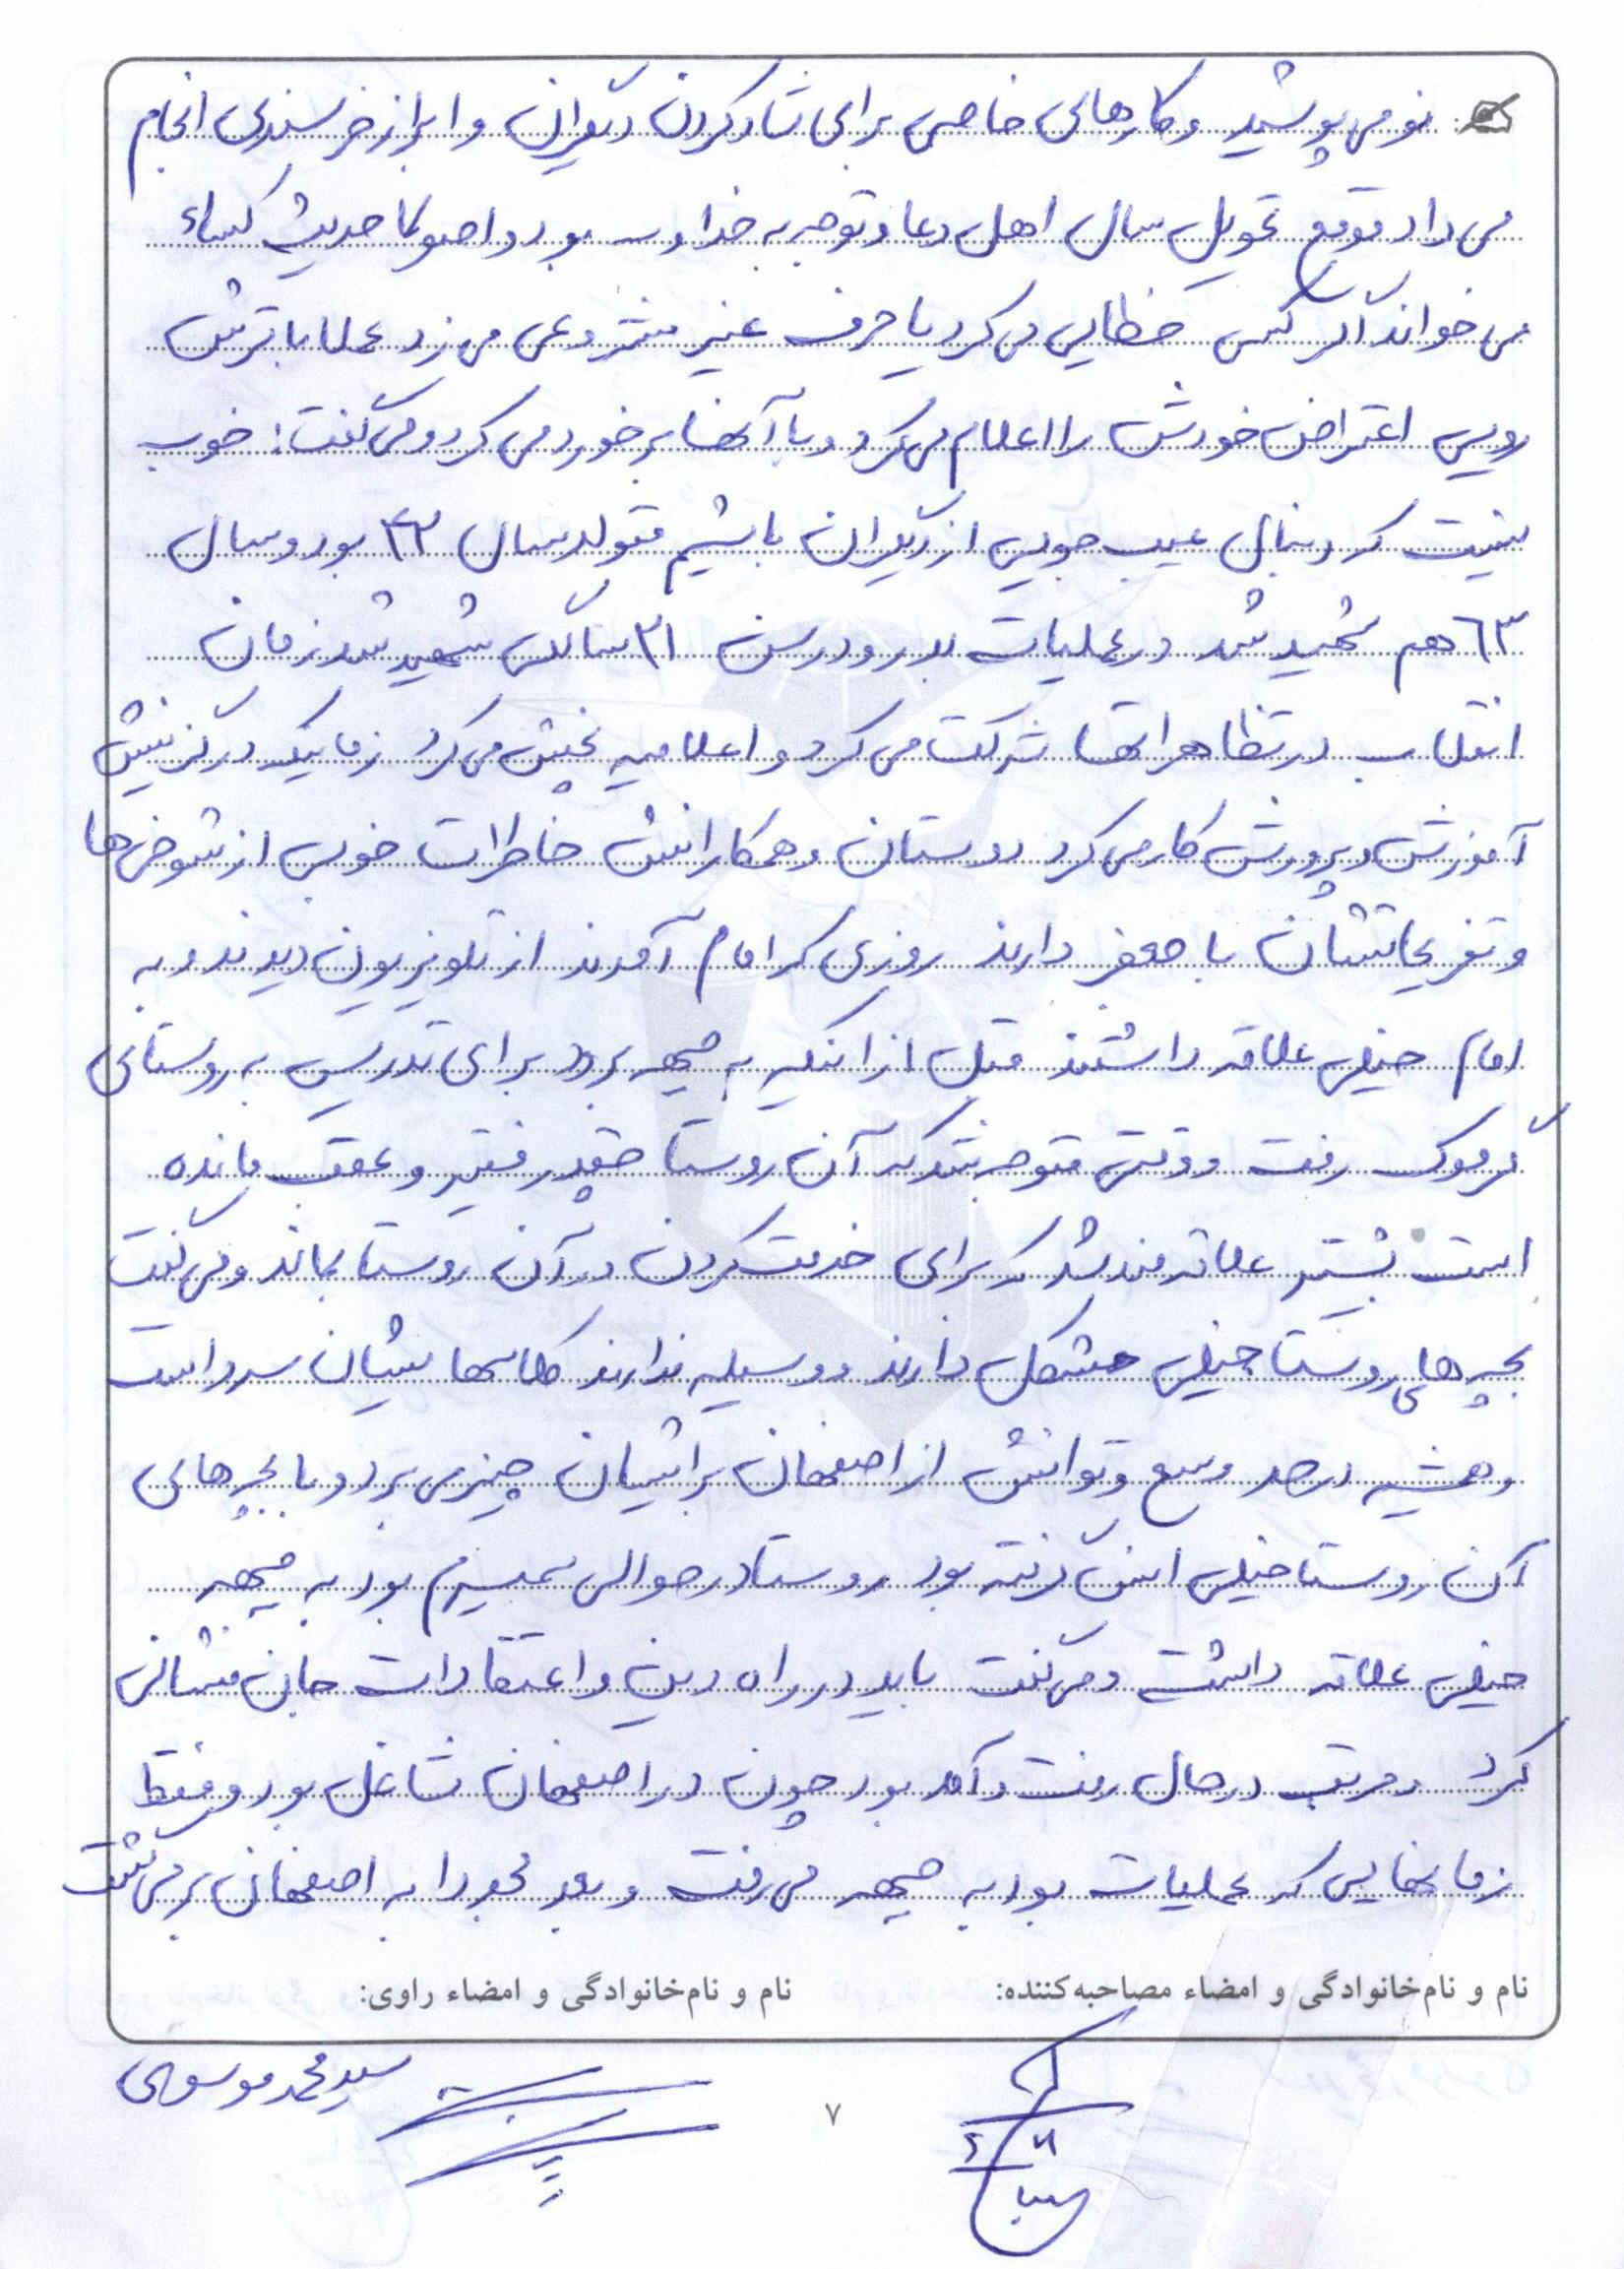 نو می پوشید و کارهای خاصی برای شاد کردن دیگران و ابراز خرسندی انجام
می داد موقع تحویل سال اهل دعا و توجه به خدا و بود و اصولا حدیث کساء
می خواند اگر کسی خطایی می کرد یا حرف غیر مشروعی می زد عملا با ترش
رویی اعتراض خودش را اعلام می کرد و با آنها برخورد می کرد و می گفت: خوب
نیست که دنبال عیب جویی از دیگران باشیم متولد سال ۴۲ بود و سال
۶۳ هم شهید شد در عملیات بدر و در سن ۲۱ سالگی شهید شد زمان
انقلاب در تظاهراتها شرکت می کرد و اعلامیه پخش می کرد زمانیکه در گزینش
آموزش و پرورش کار می کرد دوستان و همکارانش خاطرات خوبی از شوخی ها
و تفریحاتشان با جعفر دارند روزی که امام آمدند از تلویزیون دیدند و به
امام خیلی علاقه داشتند قبل از اینکه به جبهه برود برای تدریس به روستای
گرموک رفت و وقتی متوجه شد که آن روستا چقدر فقیر و عقب مانده
است بیشتر علاقه مند شد که برای خدمت کردن در آن روستا بماند و می گفت
بچه های روستا خیلی مشکل دارند و وسیله ندارند کلاسهایشان سرد است
و همیشه در حد وسع و توانش از اصفهان برایشان چیزی می برد و با بچه های
آن روستا خیلی انس گرفته بود روستا در حوالی سمیرم بود به جبهه
خیلی علاقه داشت و می گفت باید در راه دین و اعتقادات جان فشانی
کرد و مرتب در حال رفت و آمد بود چون در اصفهان شاغل بود و فقط
زمانهایی که عملیات بود به جبهه می رفت و بعد مجددا به اصفهان بر می گشت
نام و نام‌خانوادگی و امضاء مصاحبه‌کننده:
نام و نام‌خانوادگی و امضاء راوی:
سید محمد موسوی
۷